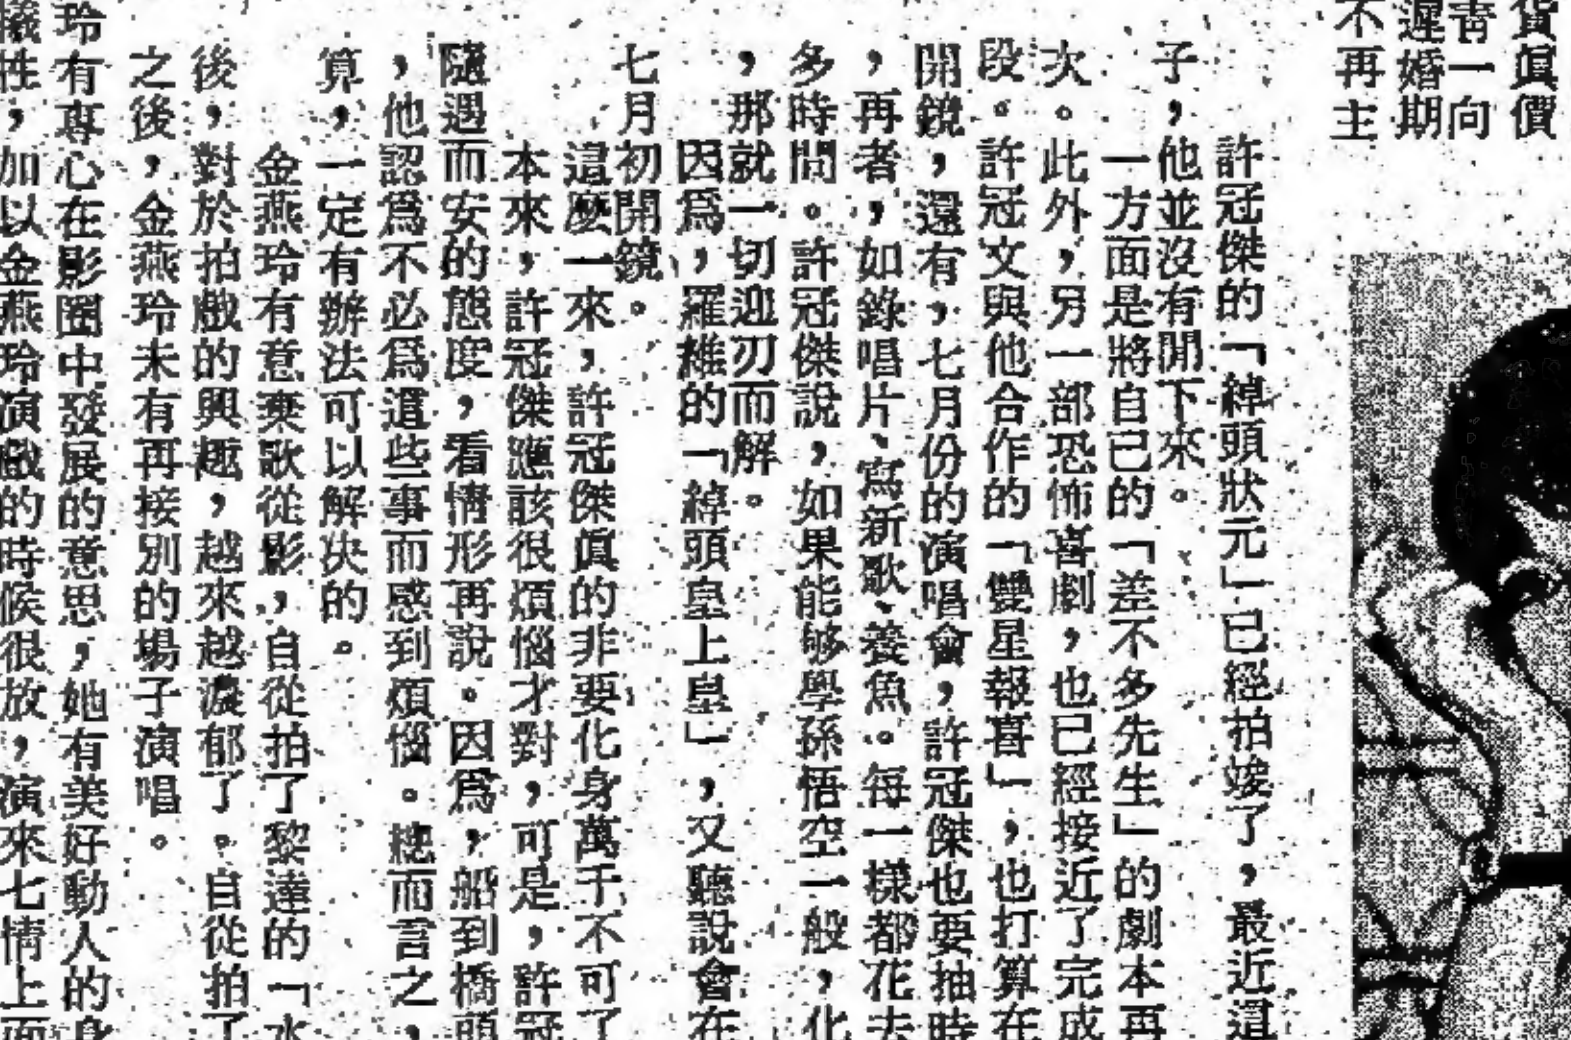 貨眞價
靑一向
遲婚期
不再主
許冠傑的「綽頭狀元」已經拍竣了，最近這
子，他並沒有閒下來。
一方面是將自已的「差不多先生」的劇本再
次。此外，另一部恐怖喜劇，也已經接近了完成
段。許冠文與他合作的「雙星報喜」，也打算在
開鏡，還有，七月份的演唱會，許冠傑也要抽時
，再者，如錄唱片、寫新歌、養魚。每一樣都花去
多時間。許冠傑說，如果能够學孫悟空一般，化
，那就一切迎刃而解。
因爲，羅維的「綽頭皇上皇」，又聽說會在
七月初開鏡。
這麼一來，許冠傑眞的非要化身萬千不可了
本來，許冠傑應該很煩惱才對，可是，許冠
隨遇而安的態度，看情形再說。因爲，船到橋頭
，他認爲不必爲這些事而感到煩惱。總而言之，
算，一定有辦法可以解決的。
金燕玲有意棄歌從影，自從拍了黎達的「水
後，對於拍戲的興趣，越來越濃郁了。自從拍了
之後，金燕玲未有再接別的場子演唱。
玲有專心在影圈中發展的意思，她有美好動人的身
犧牲，加以金燕玲演戲的時候很放，演來七情上面